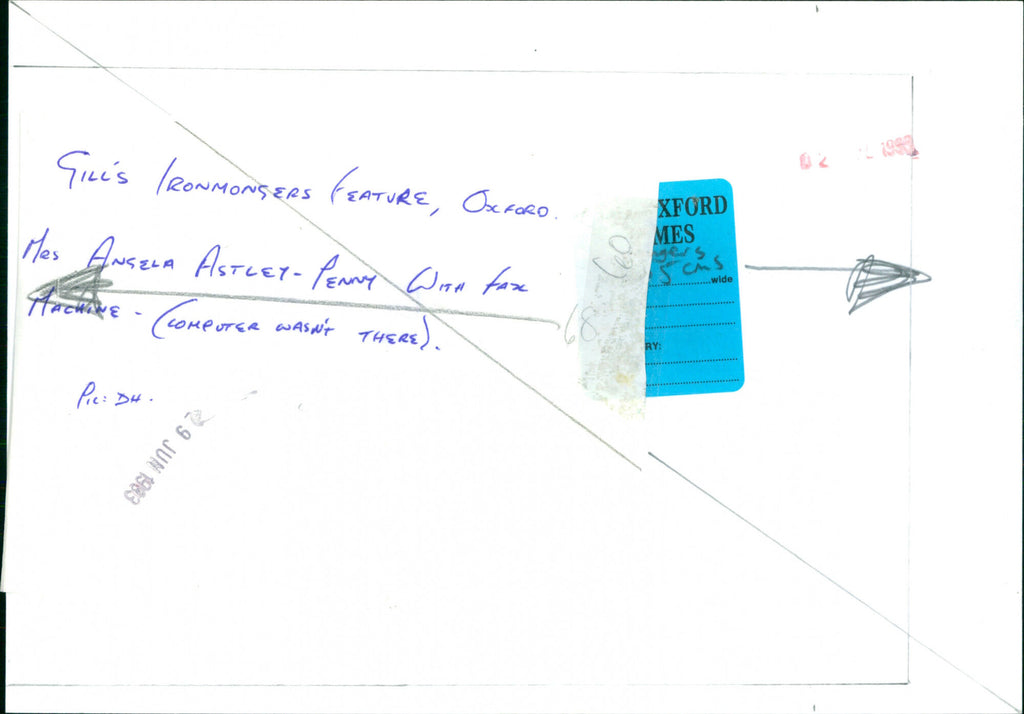 GILL'S IRONMONGERS FEATURE, OXFORD.
MRS ANGELA ASTLEY-PENNY WITH FAX
MACHINE - (COMPUTER WASN'T THERE).
PIC: DH.
9 JUN 1993
XFORD
MES
gers
5 cms
wide
RY: